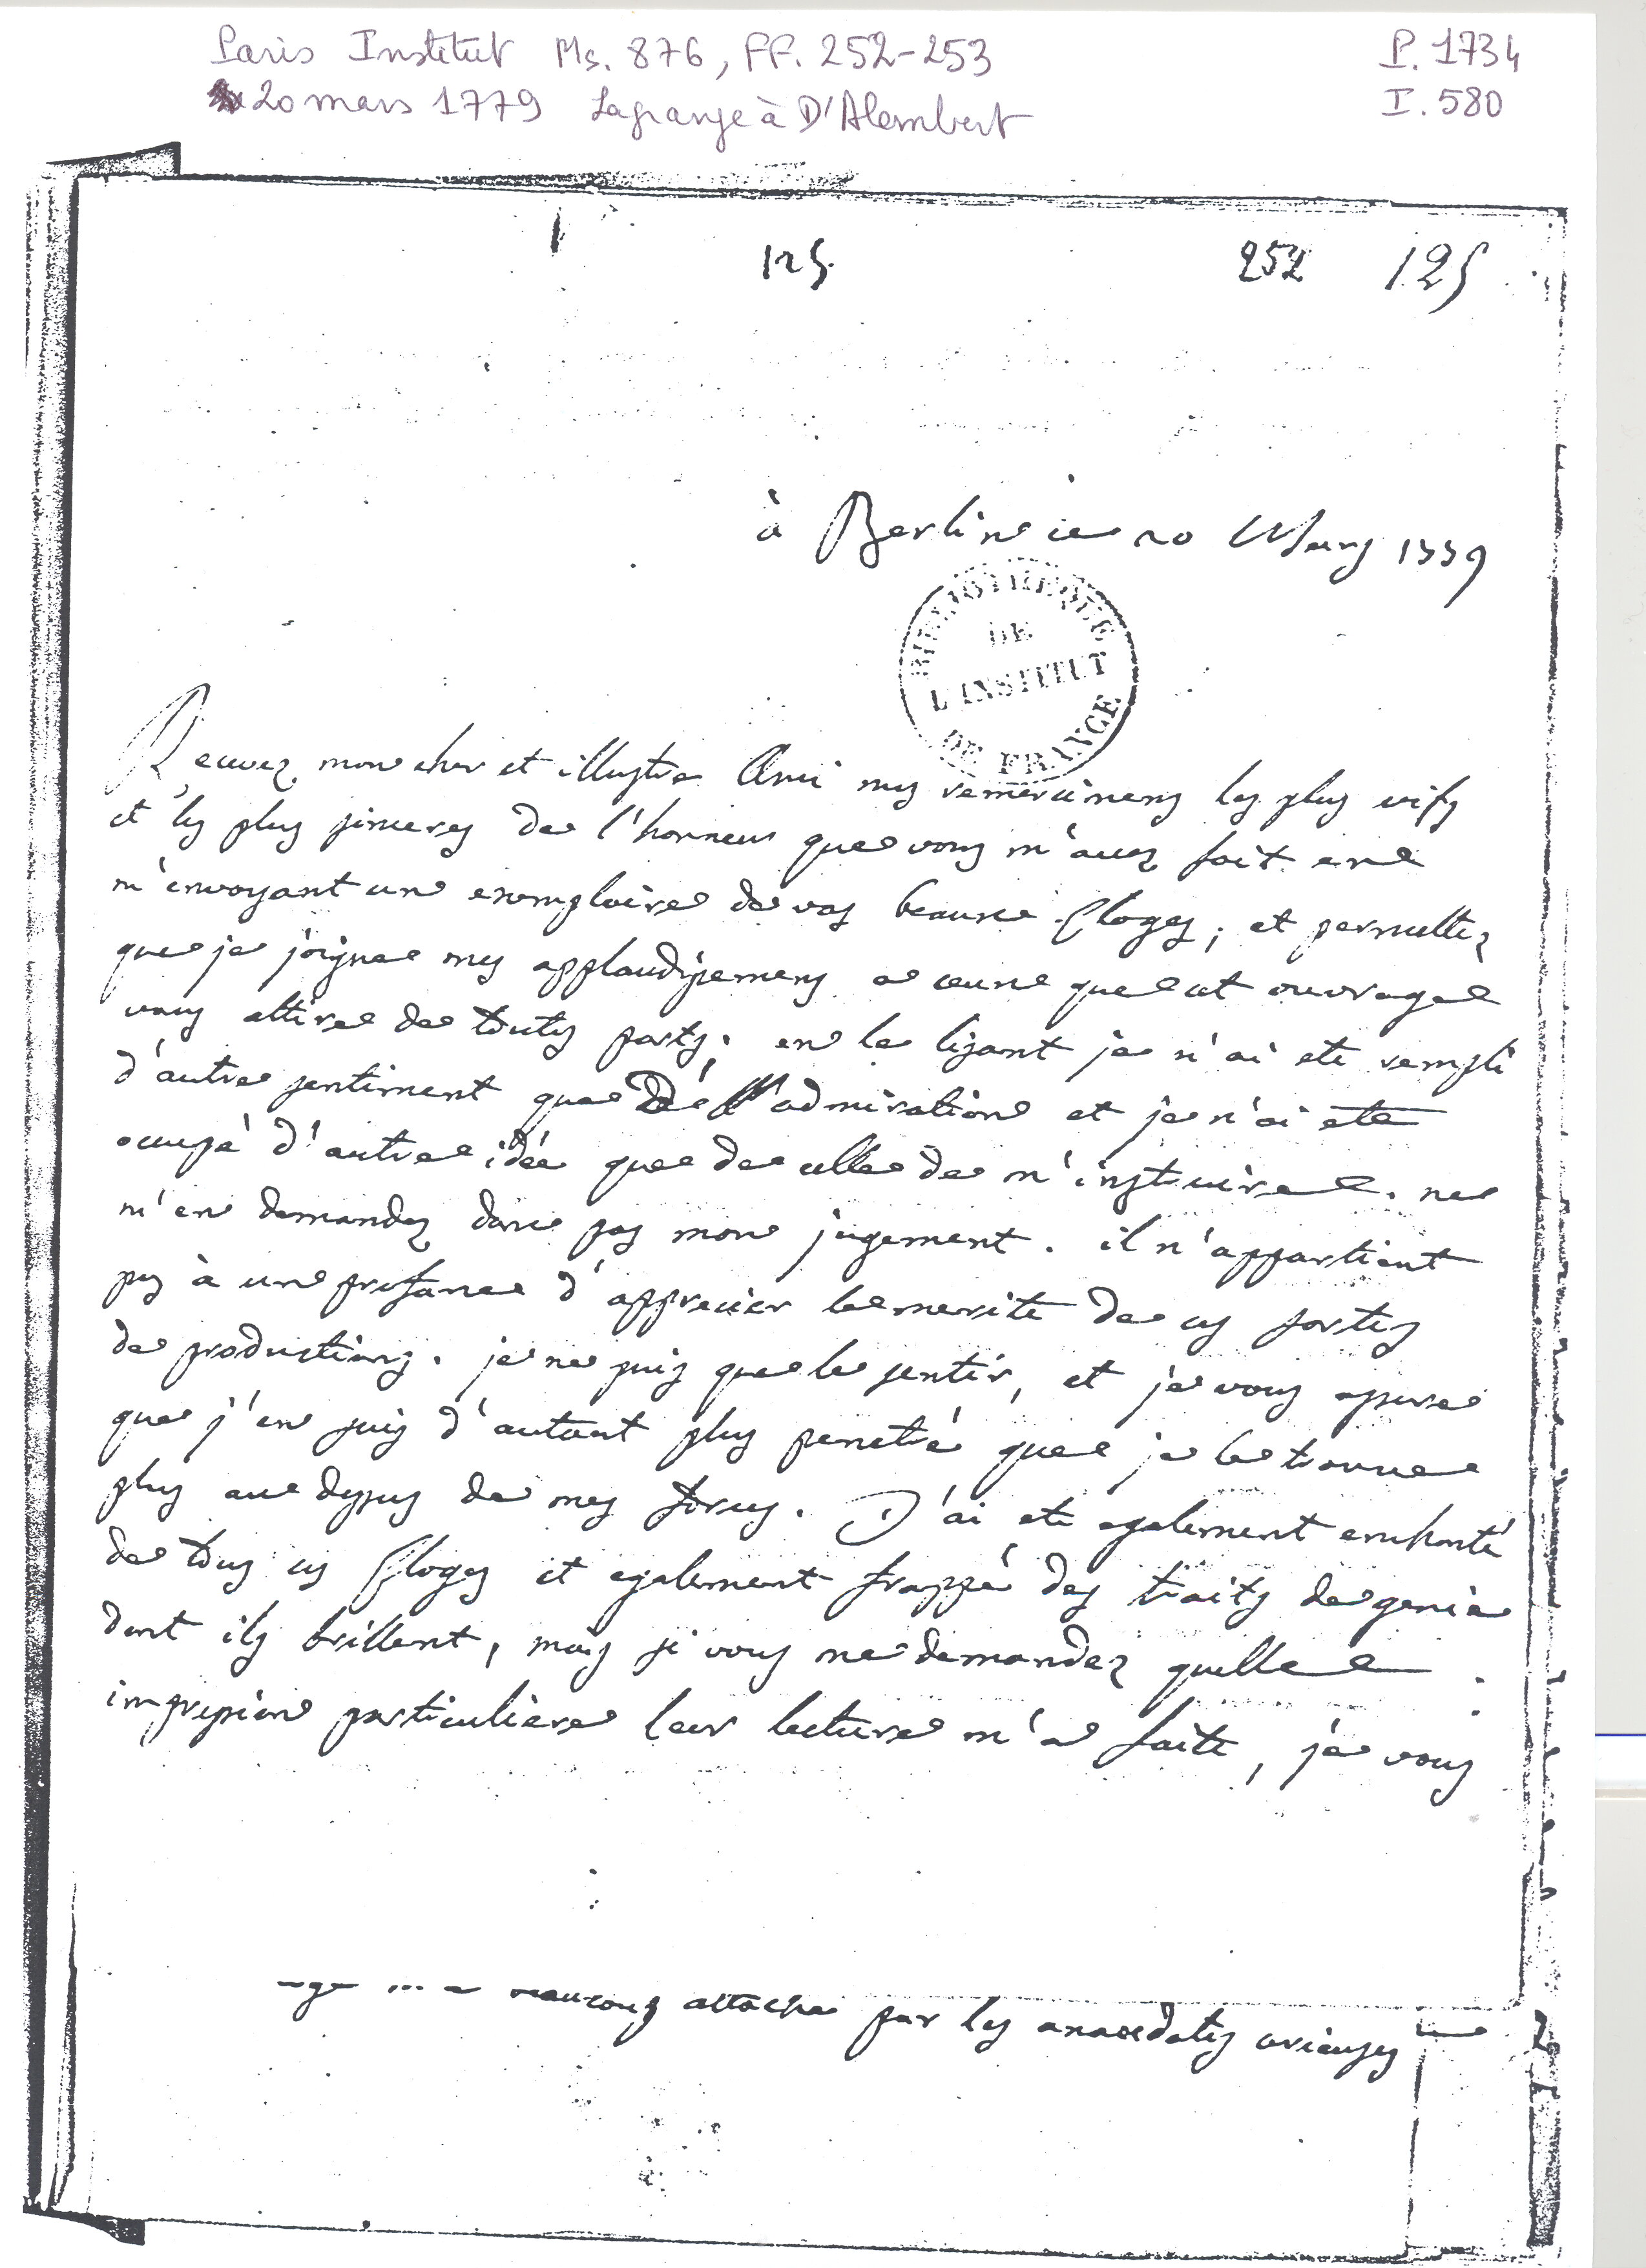 Paris Institut Ms. 876, FF. 252-253
P. 1734
20 mars 1779 Lagrange à D'Alembert
I. 580
125 252 125
à Berlin ce 20 Mars 1779
BIBLIOTHEQUE
DE
L'INSTITUT
DE FRANCE
Recevez mon cher et illustre Ami mes remercimens les plus vifs
et les plus sinceres de l'honneur que vous m'avez fait en
m'envoyant un exemplaire de vos beaux Eloges; et permettez
que je joigne mes applaudissemens a ceux que cet ouvrage
vous attire de toutes parts; en le lisant je n'ai eté rempli
d'autre sentiment que de l'admiration et je n'ai eté
occupé d'autre idée que de celle de m'instruire. ne
m'en demandez donc pas mon jugement. il n'appartient
pas à un profane d'apprecier le merite de ces sortes
de productions. je ne puis que le sentir, et je vous assure
que j'en suis d'autant plus penetré que je le trouve
plus au dessus de mes forces. J'ai eté egalement enchanté
de tous ces Eloges et egalement frappé des traits de genie
dont ils brillent, mais si vous me demandez quelle
impression particuliere leur lecture m'a faite, je vous
beaucoup attaché par les anecdotes curieuses